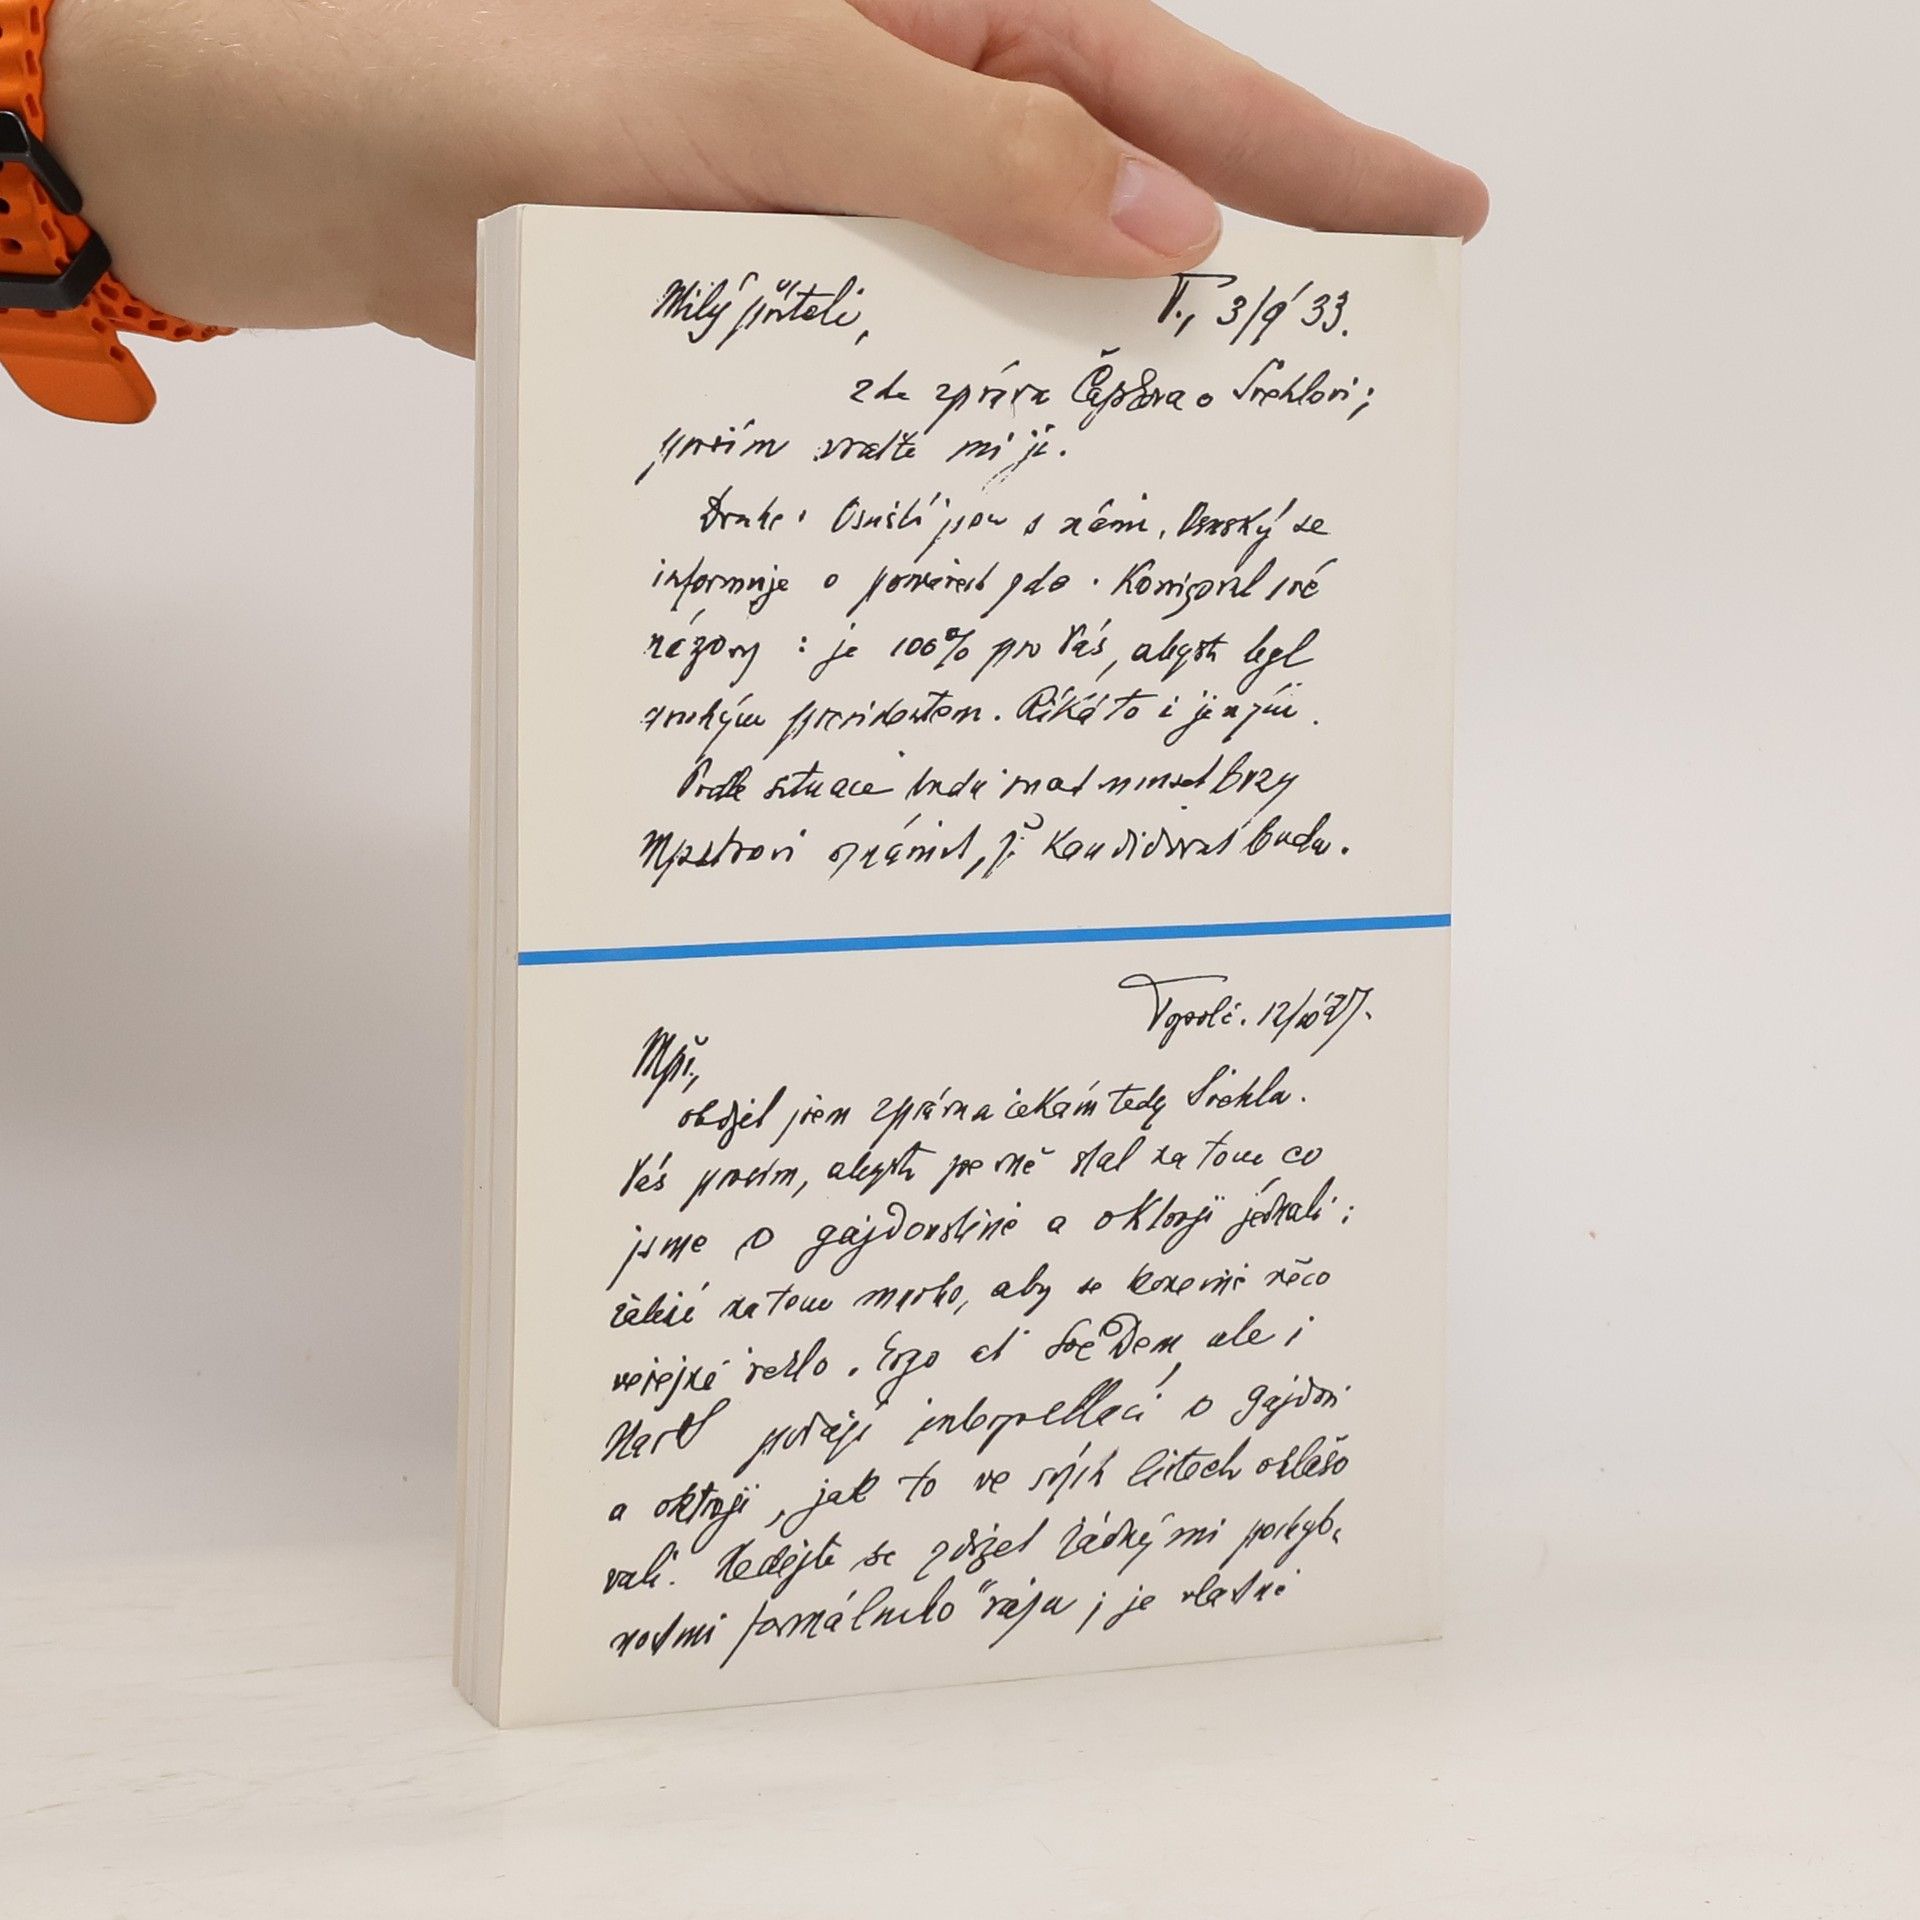 Milý příteli,
T., 3/9 33.
zde zpráva Čapkova o Švehlovi;
prosím vraťte mi ji.
Druhé: Osuští jsou s námi. Osuský se
informuje o poměrech zde. Korrigoval své
názory: je 100% pro Vás, abyste byl
druhým presidentem. Říká to i jiným.
Podle situace budu snad muset brzy
oznámit, že kandidovat budu.
Topolč. 12/10 27.
Mpř.,
obdržel jsem zprávu a čekám tedy Švehla.
Vás prosím, abyste pevně stál na tom co
jsme o gajdovštině a oktroji jednali;
záleží na tom mnoho, aby se konečně něco
veřejně řeklo. Ergo ať Soc Dem, ale i
podají interpellaci o Gajdovi
a oktroji, jak to ve svých listech ohlašo
vali. Nedejte se zdržet žádnými pochyb-
nostmi formálního "rázu; je vlastně